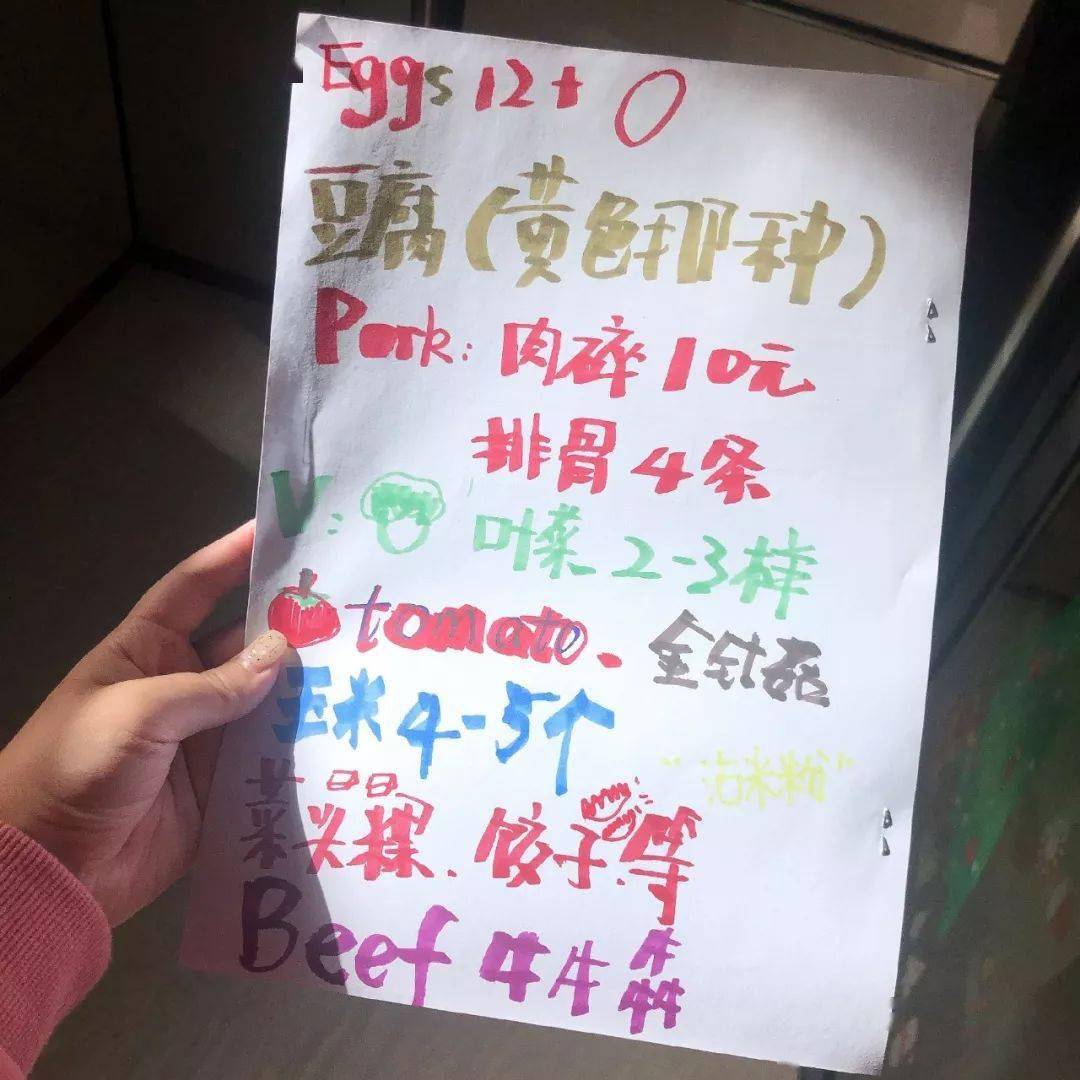 Eggs 12+
豆腐(黄色那种)
Pork: 肉碎10元
排骨4条
V: 叶菜 2-3样
tomato. 金针菇
玉米4-5个
"沾米粉"
菜头粿、饺子等
Beef 牛牛犇